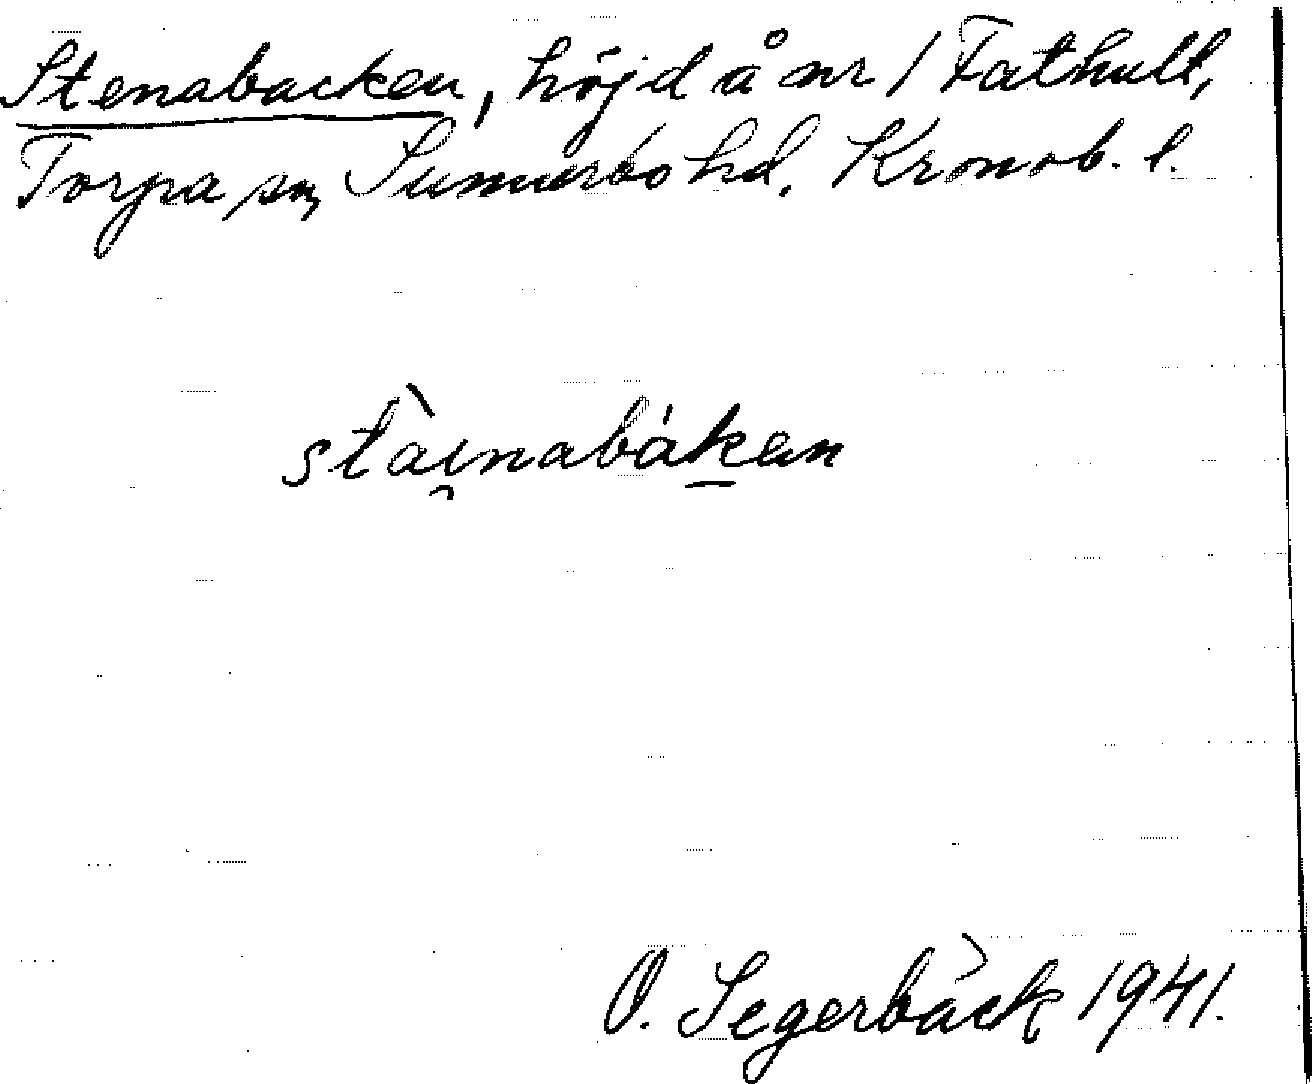 Stenabacken, höjd å nr 1 Fathult,
Torpa sn, Sunnerbo hd. Kronob. l.
stàı̯nabák̲en
O. Segerbäck 1941.